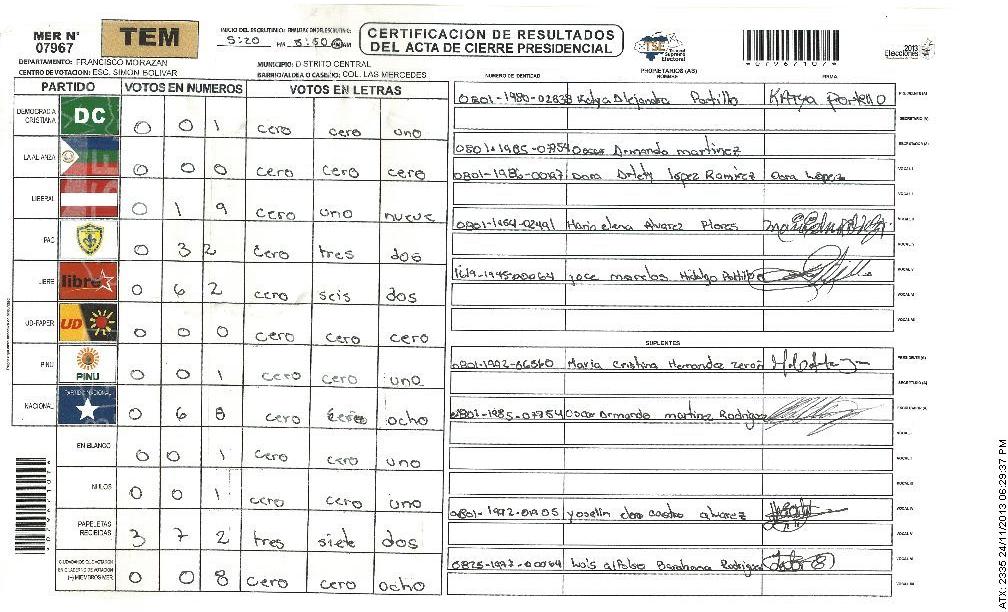 MER N° 07967
TEM
INICIO DEL ESCRUTINIO: 5:20 PM 8:50
CERTIFICACION DE RESULTADOS
DEL ACTA DE CIERRE PRESIDENCIAL
TSE Tribunal Supremo Electoral
2013 Elecciones
DEPARTAMENTO: FRANCISCO MORAZAN
MUNICIPIO: DISTRITO CENTRAL
CENTRO DE VOTACION: ESC. SIMON BOLIVAR
BARRIO/ALDEA O CASERIO: COL. LAS MERCEDES
NUMERO DE IDENTIDAD PROPIETARIOS (AS) NOMBRE FIRMA
PARTIDO VOTOS EN NUMEROS VOTOS EN LETRAS
DEMOCRACIA CRISTIANA DC 0 0 1 cero cero uno
LA ALIANZA 0 0 0 cero cero cero
LIBERAL 0 1 9 cero uno nueve
PAC 0 3 2 cero tres dos
LIBRE libre 0 6 2 cero seis dos
UD-FAPER UD 0 0 0 cero cero cero
PINU PINU 0 0 1 cero cero uno
NACIONAL PARTIDO NACIONAL 0 6 8 cero ocho
EN BLANCO 0 0 1 cero cero uno
NULOS 0 0 1 cero cero uno
PAPELETAS RECIBIDAS 3 7 2 tres siete dos
CIUDADANOS QUE VOTARON EN CUADERNO DE VOTACION (+) MIEMBROS MER 0 0 8 cero cero ocho
0801-1980-02838 Katya Alejandra Portillo Katya Portillo
0801-1985-07954 Oscar Armando martinez
0801-1986-00197 Dora Arlety lopez Ramirez Dora Lopez
0801-1964-02491 Maria elena Alvarez Flores
1619-1945-00064 jose morelos Hidalgo Portillo
SUPLENTES
Maria cristina Hernandez zeron
0801-1985-07954 Oscar Armando martinez Rodriguez
yoselin castro alvarez
Luis Barahona Rodriguez
ATX: 2335 24/11/2013 06:29:37 PM